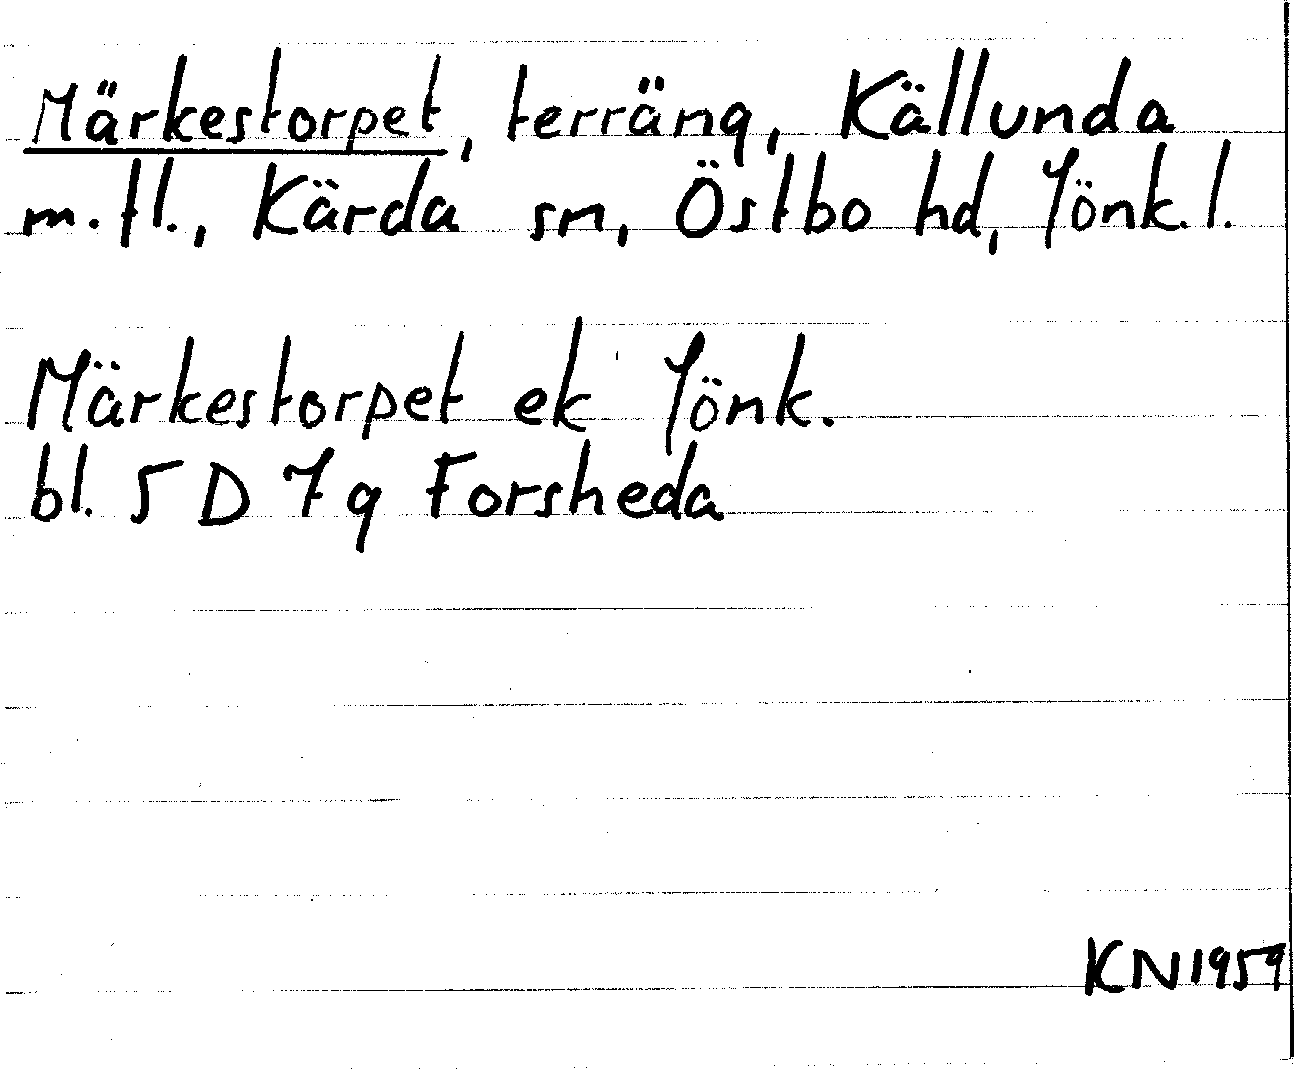 Märkestorpet, terräng, Källunda
m.fl., Kärda sn, Östbo hd, Jönk.l.
Märkestorpet ek Jönk.
bl. 5 D 7 g Forsheda
KN1959